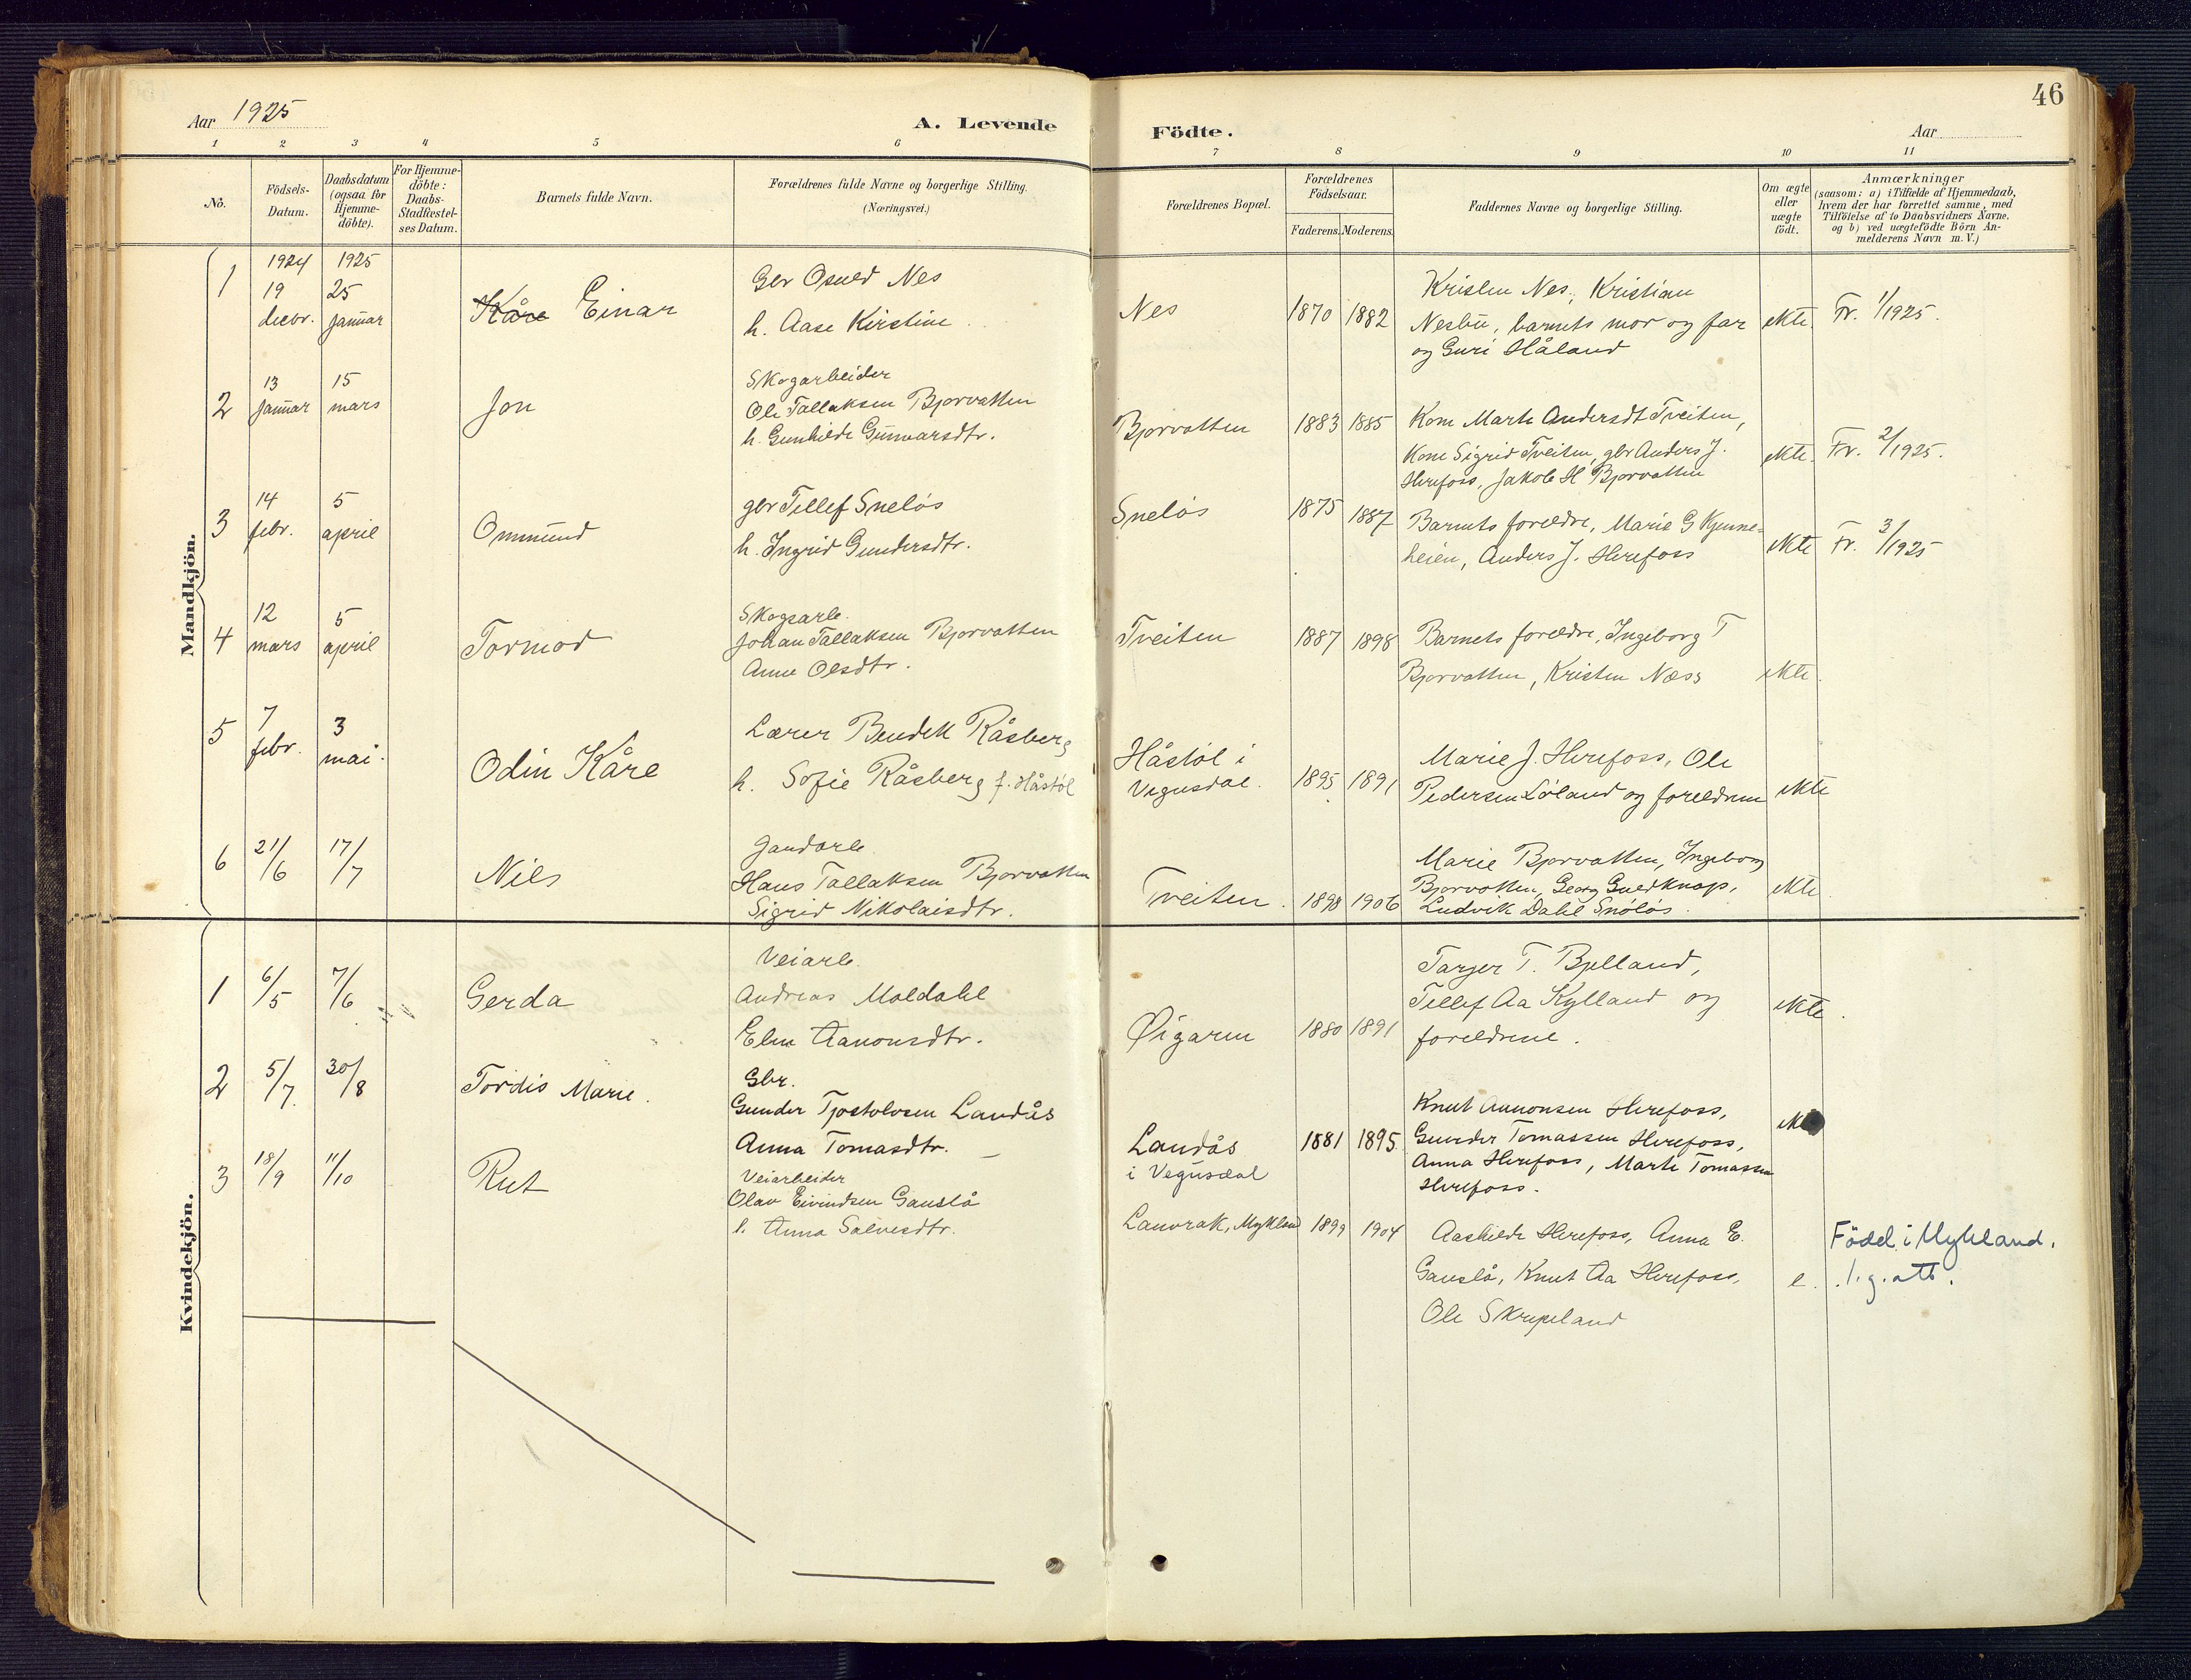 46
Aar 1925
A. Levende
Födte.
Aar
1 2 3 4 5 6 7 8 9 10 11
No.
Födsels-
Datum.
Daabsdatum
(ogsaa for
Hjemme-
döbte).
For Hjemme-
döbte:
Daabs-
Stadfæstel-
ses Datum.
Barnets fulde Navn.
Forældrenes fulde Navne og borgerlige Stilling.
(Næringsvei.)
Forældrenes Bopæl.
Forældrenes
Födselsaar.
Faderens. Moderens.
Faddernes Navne og borgerlige Stilling.
Om ægte
eller
uægte
födt.
Anmærkninger
(saasom: a) i Tilfælde af Hjemmedaab,
hvem der har forrettet samme, med
Tilföielse af to Daabsvidners Navne.
og b) ved uægtefödte Börn An-
melderens Navn m. V.)
Mandkjön.
1
1924
19
decbr.
1925
25
januar
Kåre Einar
Gbr Osuld Nes
h. Aase Kirstine
Nes
1870
1882
Kristen Nes, Kristian
Nesbu, barnets mor og far
og Guri Håland
ekte.
Fr. 1/1925.
2
13
januar
15
mars
Jon
Skogarbeider
Ole Tallaksen Bjorvatten
h. Gunhilde Gunvarsdtr.
Bjorvatten
1883
1885
Kone Marte Andersdt Tveiten,
Kone Sigrid Tveiten, gbr Anders J.
Herefoss, Jakob H Bjorvatten
ekte.
Fr. 2/1925.
3
14
febr.
5
april
Ommund
gbr Tellef Sneløs
h. Ingrid Gundersdtr.
Sneløs
1875
1887
Barnets foreldre, Marie G Kjenne-
heien, Anders J. Herefoss
ekte
Fr. 3/1925
4
12
mars
5
april
Tormod
Skogsarb.
Johan Tallaksen Bjorvatten
Anne Olsdtr.
Tveiten
1887
1898
Barnets foreldre, Ingeborg T
Bjorvatten, Kristen Næss
ekte.
5
7
febr.
3
mai.
Odin Kåre
Lærer Bendik Råsberg
h. Sofie Råsberg f. Håstøl
Håstøl i
Vegusdal.
1895
1891
Marie J. Herefoss, Ole
Pedersen Løland og foreldrene
ekte
6
21/6
17/7
Nils
Hans Tallaksen Bjorvatten
Sigrid Nikolaisdtr.
Tveiten.
1898
1906
Marie Bjorvatten, Ingeborg
Bjorvatten, Georg Guldknap,
Ludvik Dahl Snøløs.
ekte.
Kvindekjön.
1
6/5
7/6
Gerda
Veiarb.
Andreas Moldahl
Elen Aanonsdtr.
Øigaren
1880
1891
Tarjer T. Bjelland,
Tellef Aa Kylland og
foreldrene.
ekte.
2
5/7
30/8
Tordis Marie.
Gbr.
Gunder Tjostolvsen Landås
Anna Tomasdtr.
Landås
i Vegusdal
1881
1895.
Knut Aanonsen Herefoss,
Gunder Tomassen Herefoss,
Anna Herefoss, Marte Tomassen
Herefoss.
3
18/9
11/10
Rut
Veiarbeider
Olav Eivindsen Gauslå
h. Anna Salvesdtr.
Lauvrak, Mykland
1899
1904
Aashilde Herefoss, Anna E.
Gauslå, Knut Aa Herefoss,
Ole Skripeland
e.
Född i Mykland.
l.g. att.